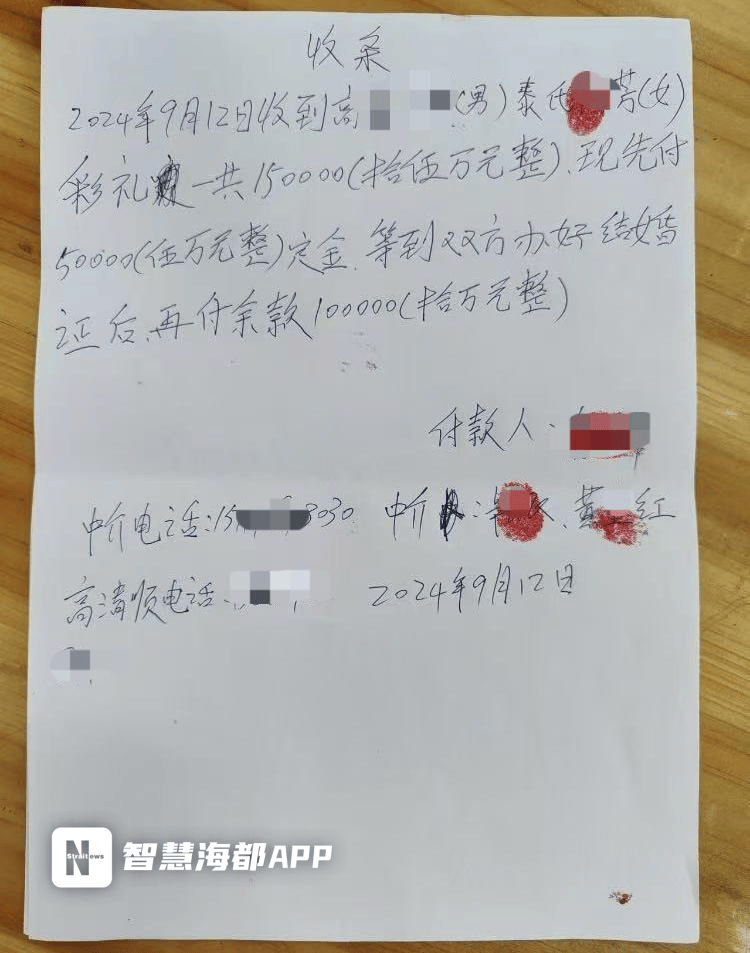 收条
2024年9月12日收到高(男)泰氏芳(女)
彩礼一共150000(拾伍万元整).现先付
50000(伍万元整)定金.等到双方办好结婚
证后.再付余款100000(拾万元整)
付款人:
中介电话:15 8030 中介:氏、黄红
高清顺电话: 2024年9月12日
N
Straitnews
智慧海都APP